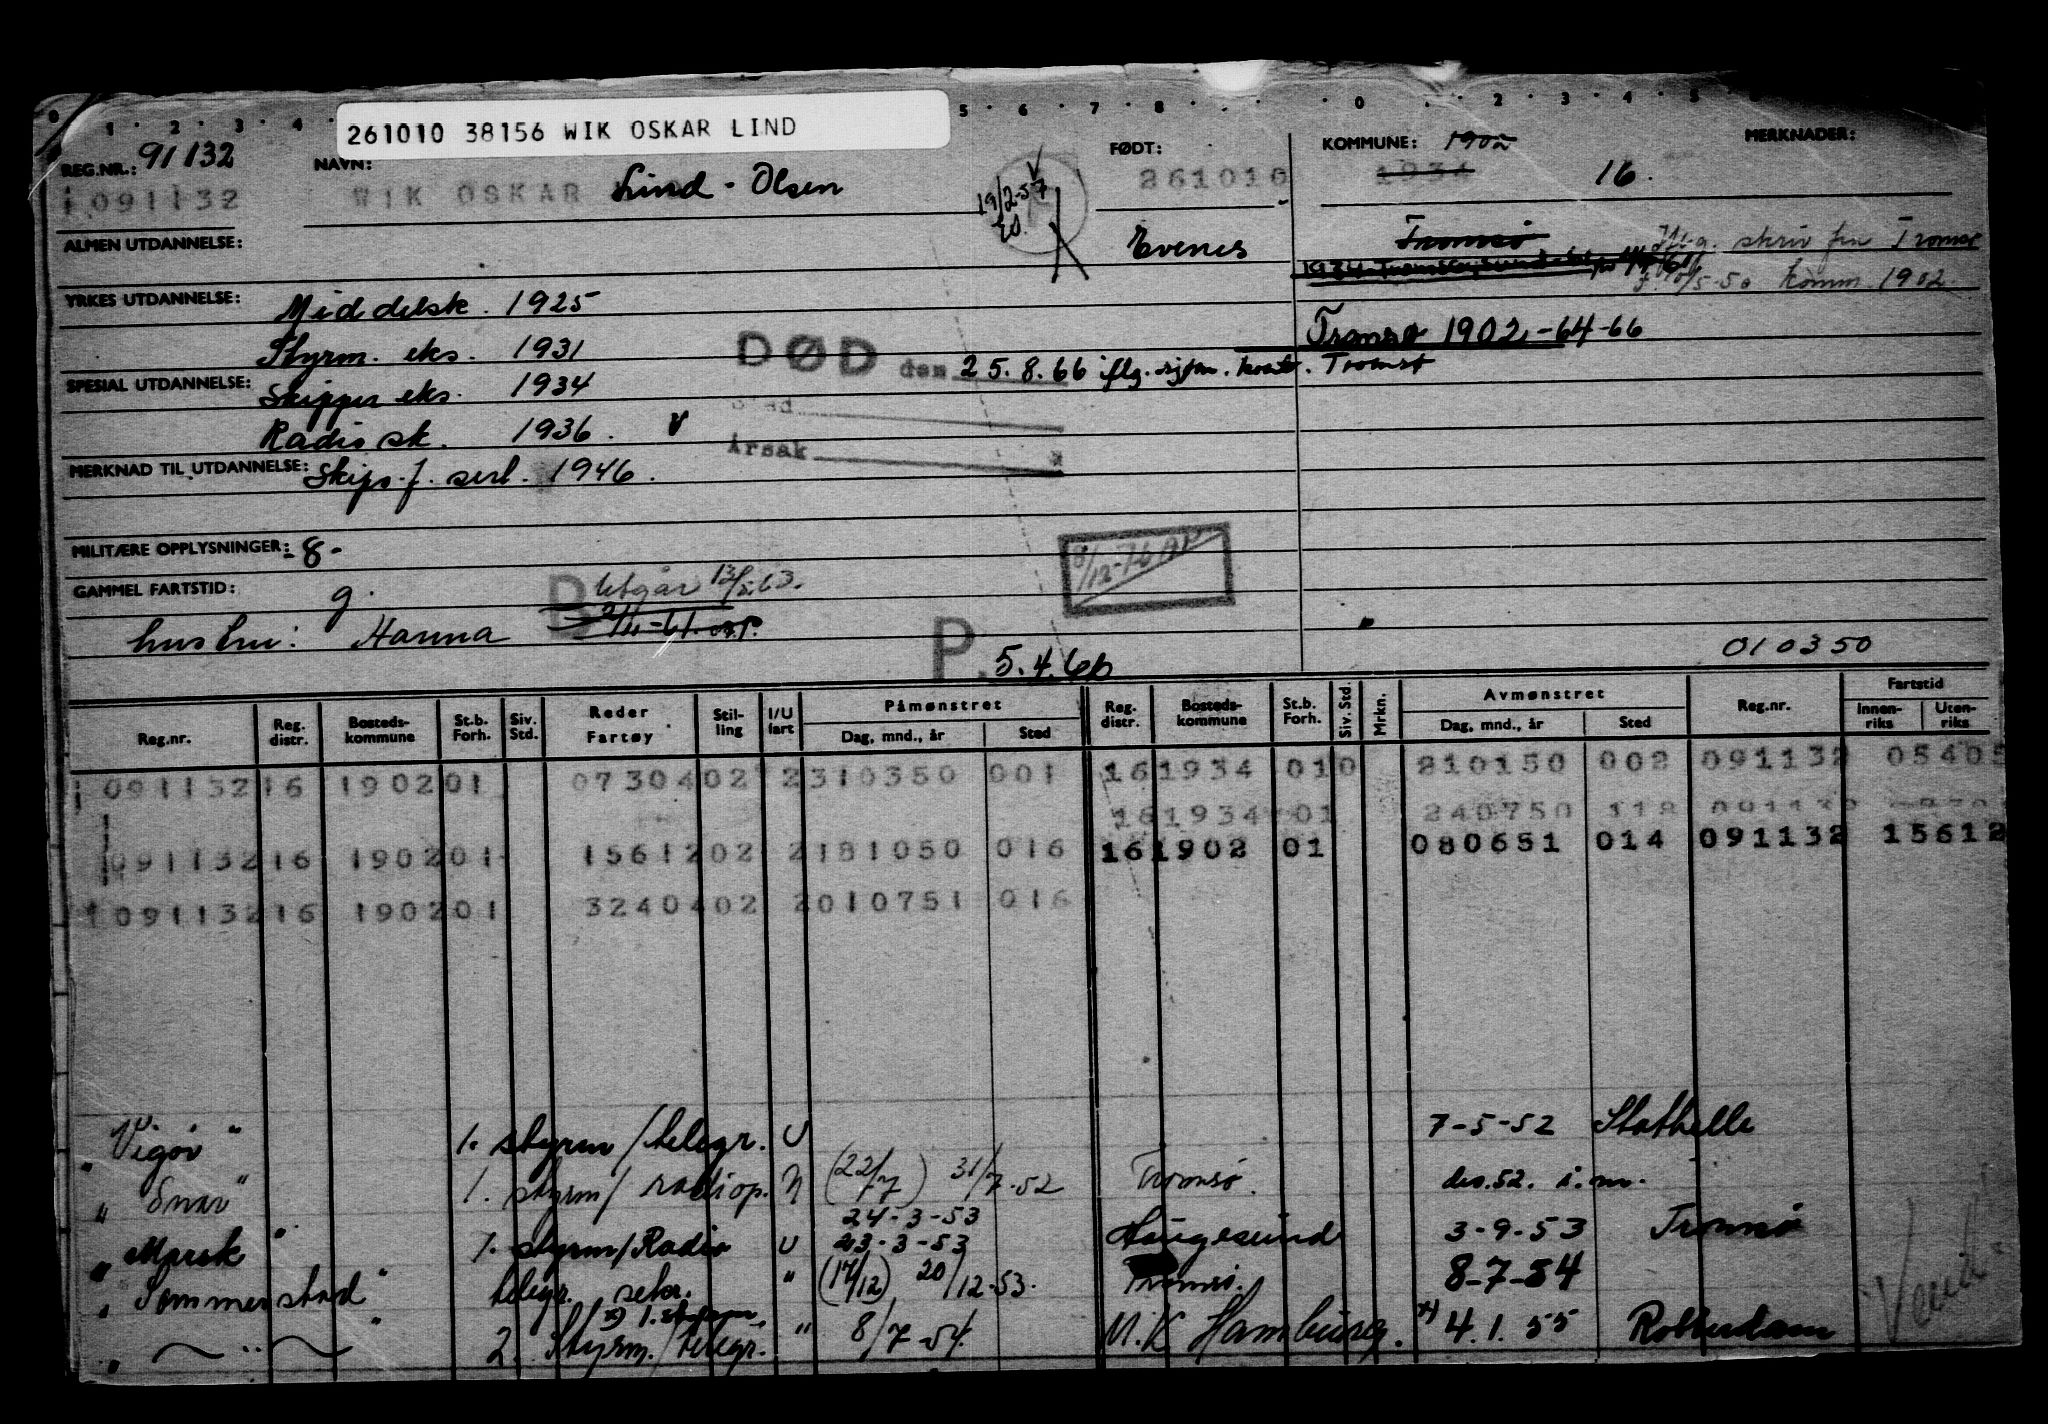 261010 38156 WIK OSKAR LIND
REG.NR.: 91132 NAVN: FØDT: KOMMUNE: 1902 MERKNADER:
091132 WIK OSKAR Lind - Olsen 19/2-57 261010 1934 16.
ALMEN UTDANNELSE: Evenes Tromsø skriv fra Tromsø
/5-50 komm. 1902
YRKES UTDANNELSE: Middelsk. 1925
Tromsø 1902-64-66
Styrm. eks. 1931
DØD den 25.8.66 iflg. sjøm. kont. Tromsø
SPESIAL UTDANNELSE: Skipper eks. 1934
Sted
Radio sk. 1936. V
Årsak
MERKNAD TIL UTDANNELSE: Skips.f. sert. 1946.
MILITÆRE OPPLYSNINGER: 8-
GAMMEL FARTSTID: g. D Utgår
hustru: Hanna P. 5.4.66
010350
Reg.nr. Reg. distr. Bosteds-kommune St.b. Forh. Siv. Std. Reder Fartøy Stil-ling I/U fart Påmønstret Dag, mnd., år Sted Reg. distr. Bosteds-kommune St.b. Forh. Siv. Std. Mrkn. Avmønstret Dag, mnd., år Sted Reg.nr. Fartstid Innen-riks Uten-riks
091132 16 1902 01 07304 02 2 310350 001 16 1934 01 0 210150 002 091132 05405
16 1934 01 240750 118 091132
091132 16 1902 01 15612 02 2 181050 016 16 1902 01 080651 014 091132 15612
091132 16 1902 01 32404 02 2 010751 016
"Vigør" 1. styrm/telegr. U 7-5-52 Stathelle
"Snar" 1. styrm/radiop. N (22/7) 31/7-52 Tromsø. des.52. i.m.
24-3-53
"Marsk" 1. styrm/Radio U 23-3-53 Haugesund 3-9-53 Tromsø
"Sommerstad" telegr. sekr. " (17/12) 20/12-53. Tromsø. 8-7-54
x) 1. styrm.
" — " — " 2. Styrm./telegr. " 8/7-54 M.K Hamburg. x) 4.1.55 Rotterdam